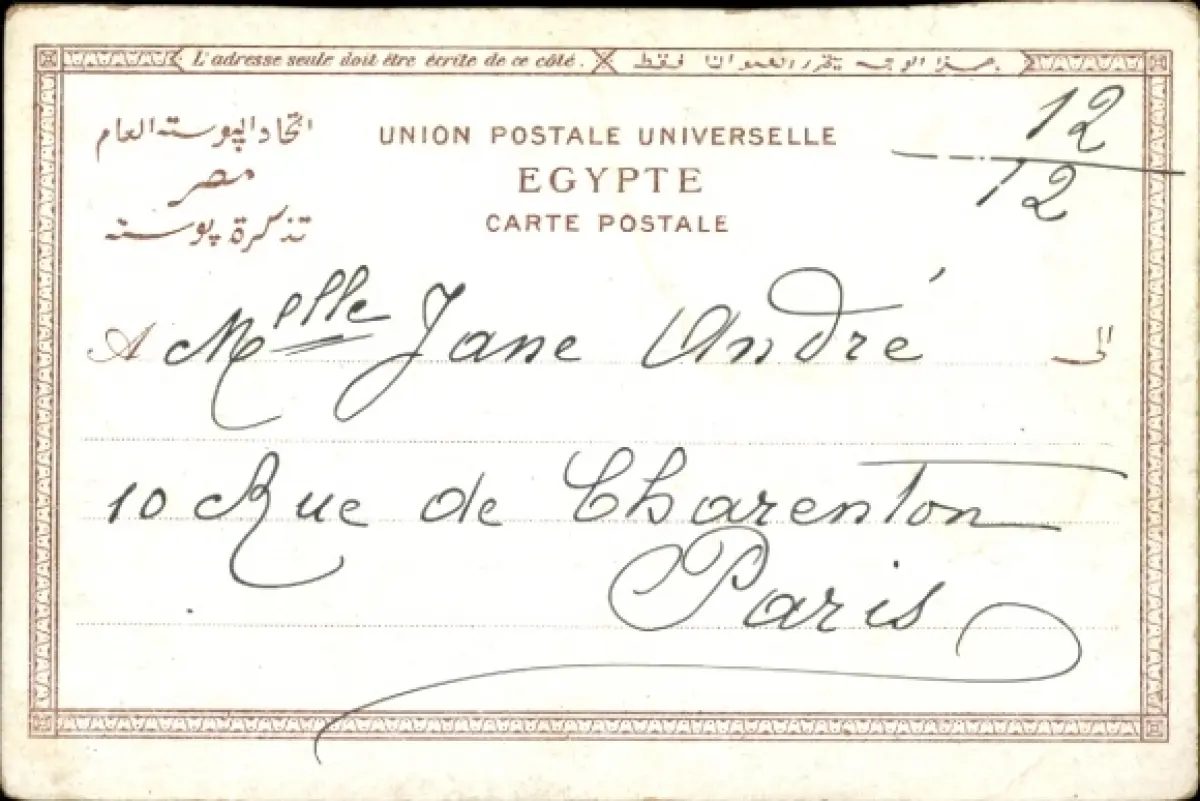 L'adresse seule doit être écrite de ce côté. هذا الوجه يتحرر العنوان فقط
اتحاد البوسته العام
مصر
تذكرة بوسته
UNION POSTALE UNIVERSELLE
EGYPTE
CARTE POSTALE
12
12
A Melle Jane André الى
10 Rue de Charenton
Paris